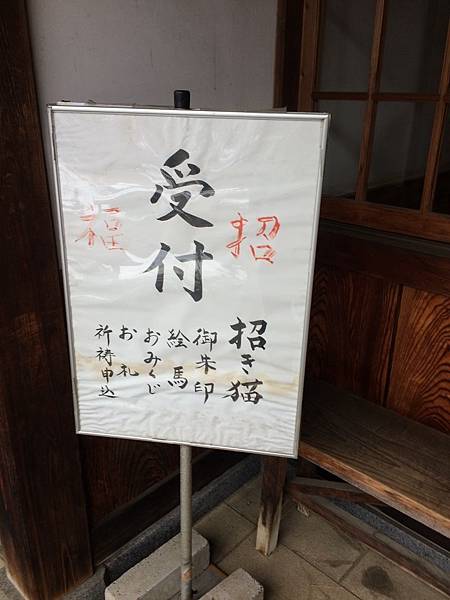 受付
招
福
招き猫
御朱印
絵馬
おみくじ
お札
祈祷申込